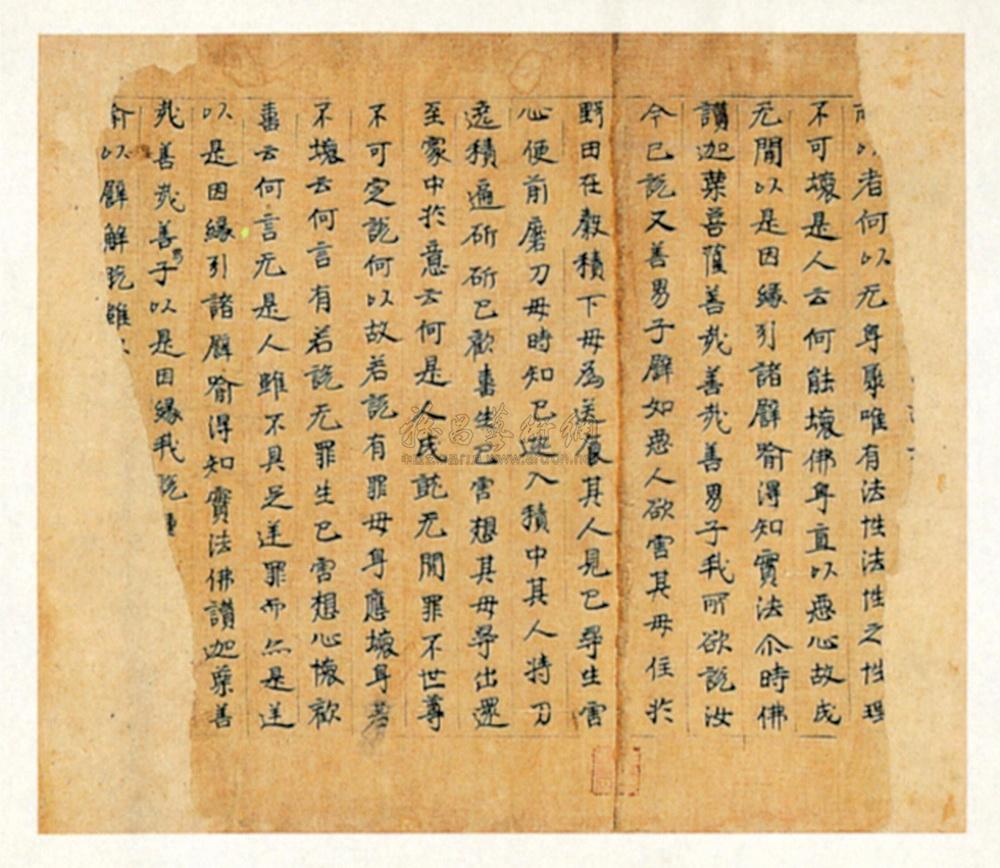 所以者何以无身聚唯有法性法性之性理
不可壞是人云何能壞佛身直以惡心故成
无間以是因緣引諸辟喻得知實法尒時佛
讚迦葉菩薩善哉善哉善男子我所欲說汝
今已說又善男子辟如惡人欲害其母住於
野田在穀積下母為送食其人見已尋生害
心便前磨刀母時知已逃入積中其人持刀
遶積遍斫斫已歡喜生已害想其母尋出還
至家中於意云何是人成就无間罪不世尊
不可定說何以故若說有罪母身應壞身若
不壞云何言有若說无罪生已害想心懷歡
喜云何言无是人雖不具足逆罪而亦是逆
以是因緣引諸辟喻得知實法佛讚迦葉善
哉善哉善男子以是因緣我說種
喻以辟解脫雖以